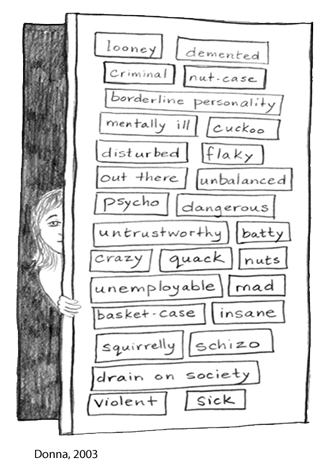 looney demented
criminal nut-case
borderline personality
mentally ill cuckoo
disturbed flaky
out there unbalanced
psycho dangerous
untrustworthy batty
crazy quack nuts
unemployable mad
basket-case insane
squirrelly schizo
drain on society
violent sick
Donna, 2003